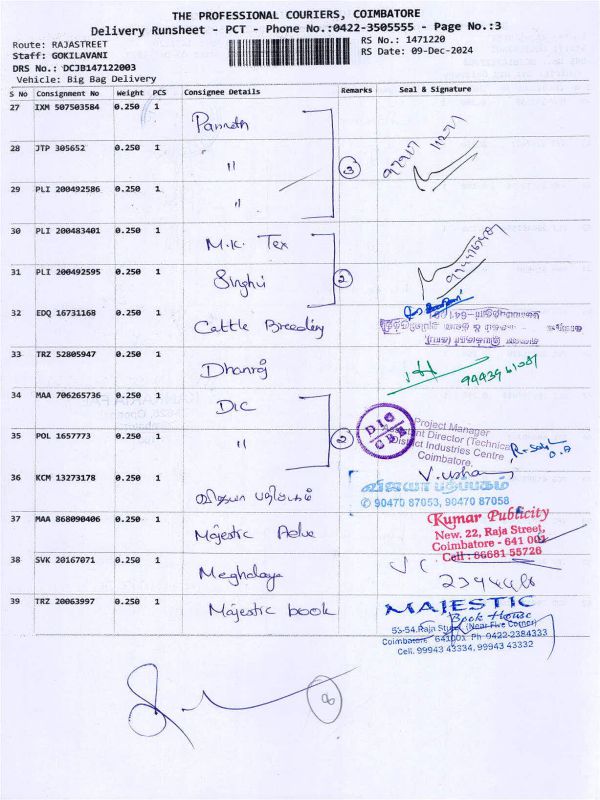 THE PROFESSIONAL COURIERS, COIMBATORE
Delivery Runsheet - PCT - Phone No.:0422-3505555 - Page No.:3
Route: RAJASTREET RS No.: 1471220
Staff: GOKILAVANI RS Date: 09-Dec-2024
DRS No.: DCJB147122003
Vehicle: Big Bag Delivery
S No Consignment No Weight PCS Consignee Details Remarks Seal & Signature
27 IXM 507503584 0.250 1
28 JTP 305652 0.250 1 "
29 PLI 200492586 0.250 1 "
3
30 PLI 200483401 0.250 1 M.K. Tex
31 PLI 200492595 0.250 1 Singhvi
2
32 EDQ 16731168 0.250 1 Cattle Breeding
33 TRZ 52805947 0.250 1 Dhanraj
34 MAA 706265736 0.250 1 DIC
35 POL 1657773 0.250 1 "
2
DIC
CBE
Project Manager
Assistant Director (Technical)
District Industries Centre
Coimbatore.
36 KCM 13273178 0.250 1 விஜயா பதிப்பகம் V. Usha
விஜயா பதிப்பகம்
✆ 90470 87053, 90470 87058
37 MAA 868090406 0.250 1 Majestic
Kumar Publicity
New. 22, Raja Street,
Coimbatore - 641 001
Cell : 86681 55726
38 SVK 20167071 0.250 1 Meghalaya
39 TRZ 20063997 0.250 1 Majestic book
MAJESTIC
Book House
53-54.Raja Street (Near Five Corner)
Coimbatore 641001 Ph 0422-2384333
Cell. 99943 43334, 99943 43332